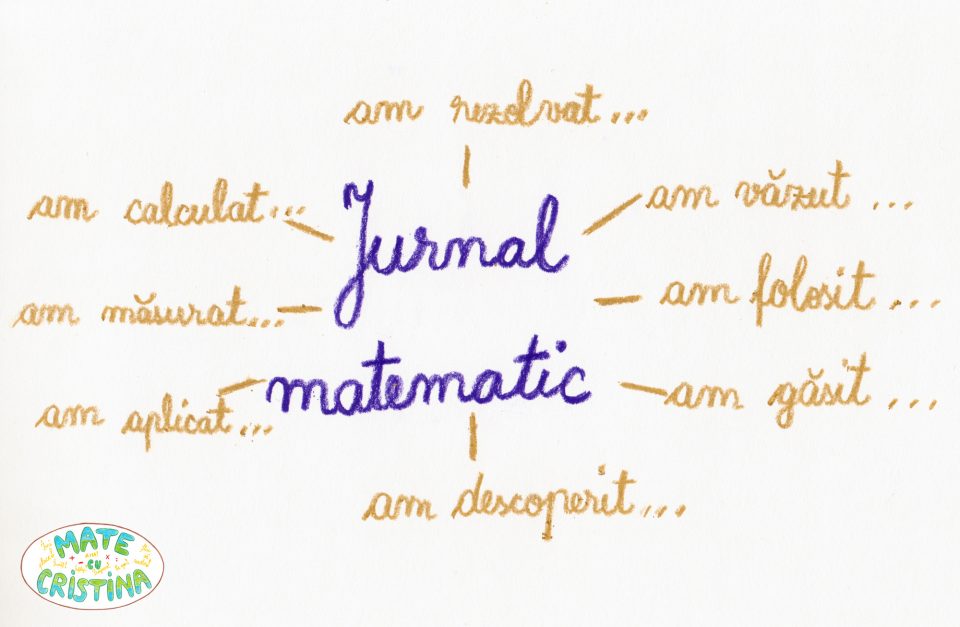 am rezolvat...
am calculat...
am văzut ...
Jurnal
am măsurat...
am folosit ...
matematic
am aplicat...
am găsit ...
am descoperit...
MATE
CU
CRISTINA